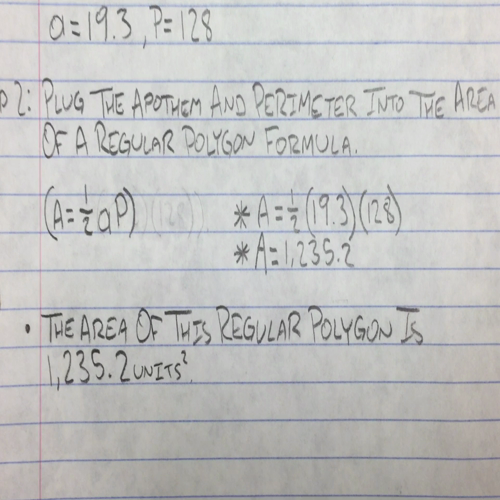 a=19.3, P=128
p 2: PLUG THE APOTHEM AND PERIMETER INTO THE AREA
OF A REGULAR POLYGON FORMULA.
(A=½aP) * A=½(19.3)(128)
* A=1,235.2
• THE AREA OF THIS REGULAR POLYGON IS
1,235.2 UNITS².